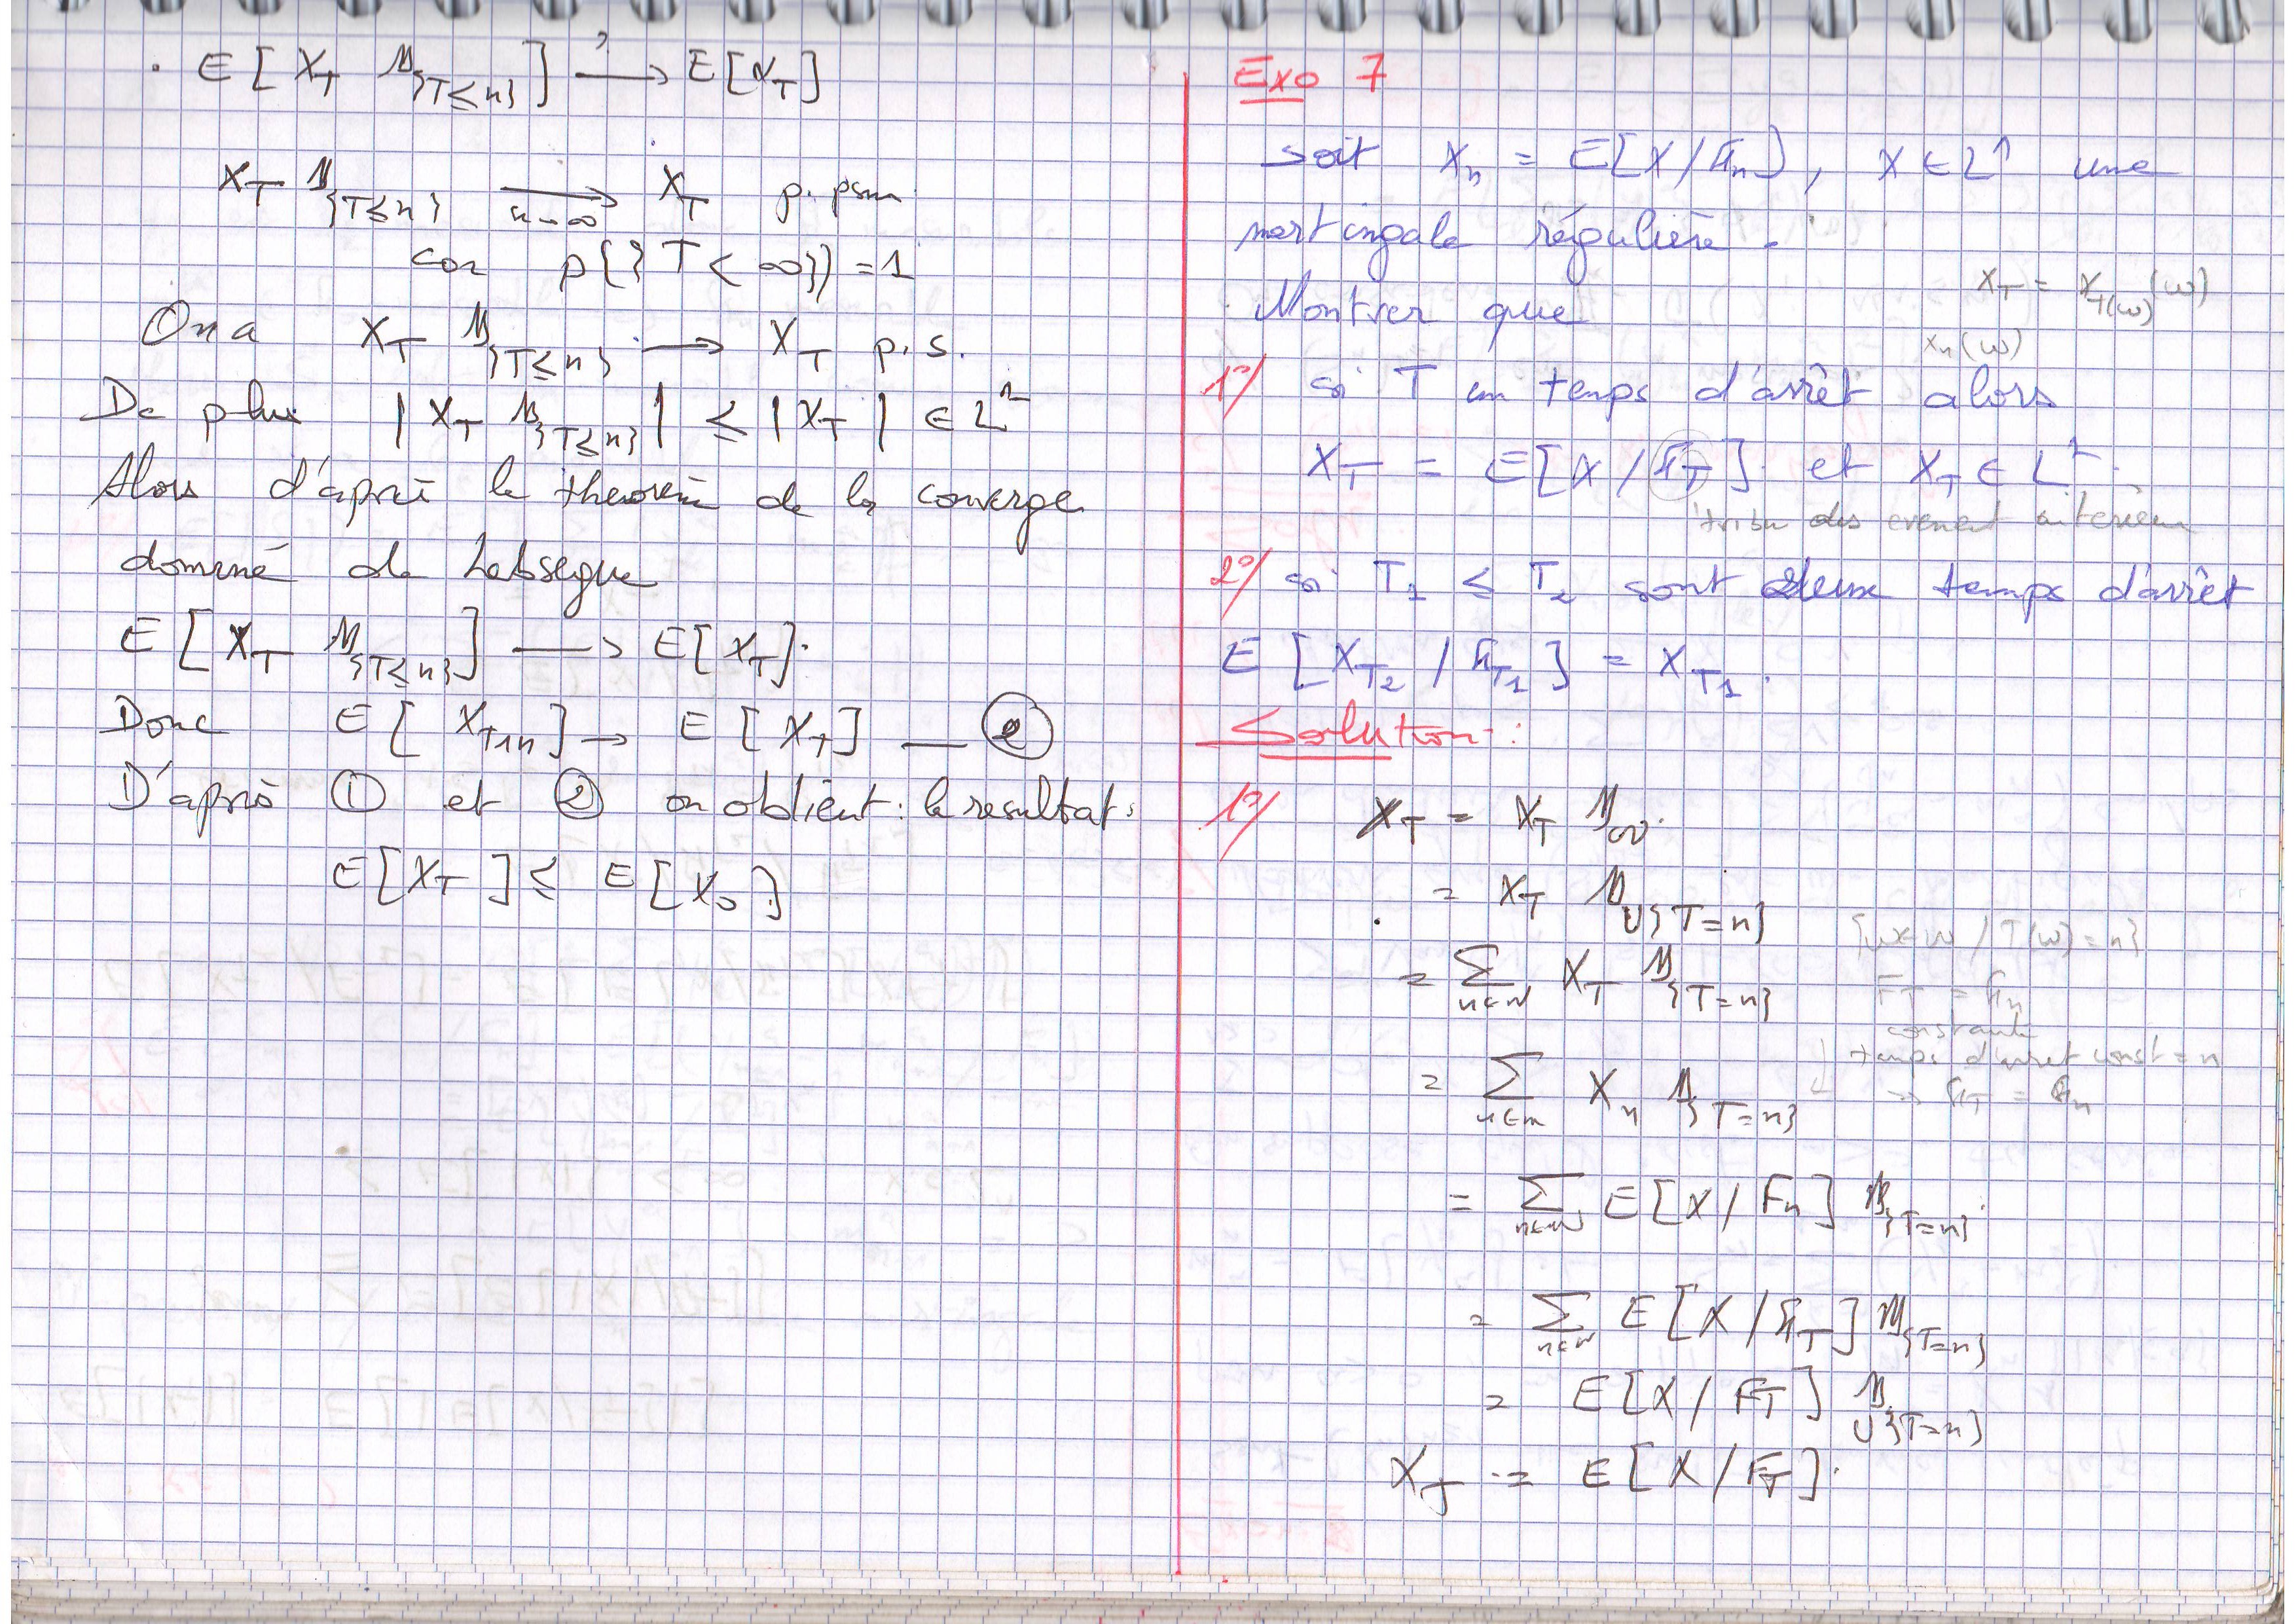 . E[X_T 𝟙_{T≤n}] →^? E[X_T]
X_T 𝟙_{T≤n} →_{n→∞} X_T p.
car p({T<∞}) = 1
On a X_T 𝟙_{T≤n} → X_T p.s.
De plus |X_T 𝟙_{T≤n}| ≤ |X_T| ∈ L^1
Alors d'après le theoreme de la converge
dominé de Lebsegue
E[X_T 𝟙_{T≤n}] → E[X_T].
Donc E[X_{T∧n}] → E[X_T] — ②
D'après ① et ② on obtient : le resultat :
E[X_T] ≤ E[X_0]
Exo 7
soit X_n = E[X/F_n], X ∈ L^1 une
martingale régulière.
Montrer que
X_T = X_{T(ω)}(ω)
X_n(ω)
1°/ si T un temps d'arrêt alors
X_T = E[X/F_T] et X_T ∈ L^1.
tribu des evenent anterieur
2°/ si T_1 ≤ T_2 sont deux temps d'arrêt
E[X_{T_2}/F_{T_1}] = X_{T_1}.
Solution :
1°/ X_T = X_T 𝟙_Ω.
= X_T 𝟙_{∪{T=n}}
{ω∈Ω / T(ω)=n}
= ∑_{n∈ℕ} X_T 𝟙_{T=n}
F_T = F_n
constante
temps d'arret const = n
= ∑_{n∈ℕ} X_n 𝟙_{T=n}
→ F_T = F_n
= ∑_{n∈ℕ} E[X/F_n] 𝟙_{T=n}.
= ∑_{n∈ℕ} E[X/F_T] 𝟙_{T=n}
= E[X/F_T] 𝟙_{∪{T=n}}
X_T = E[X/F_T].